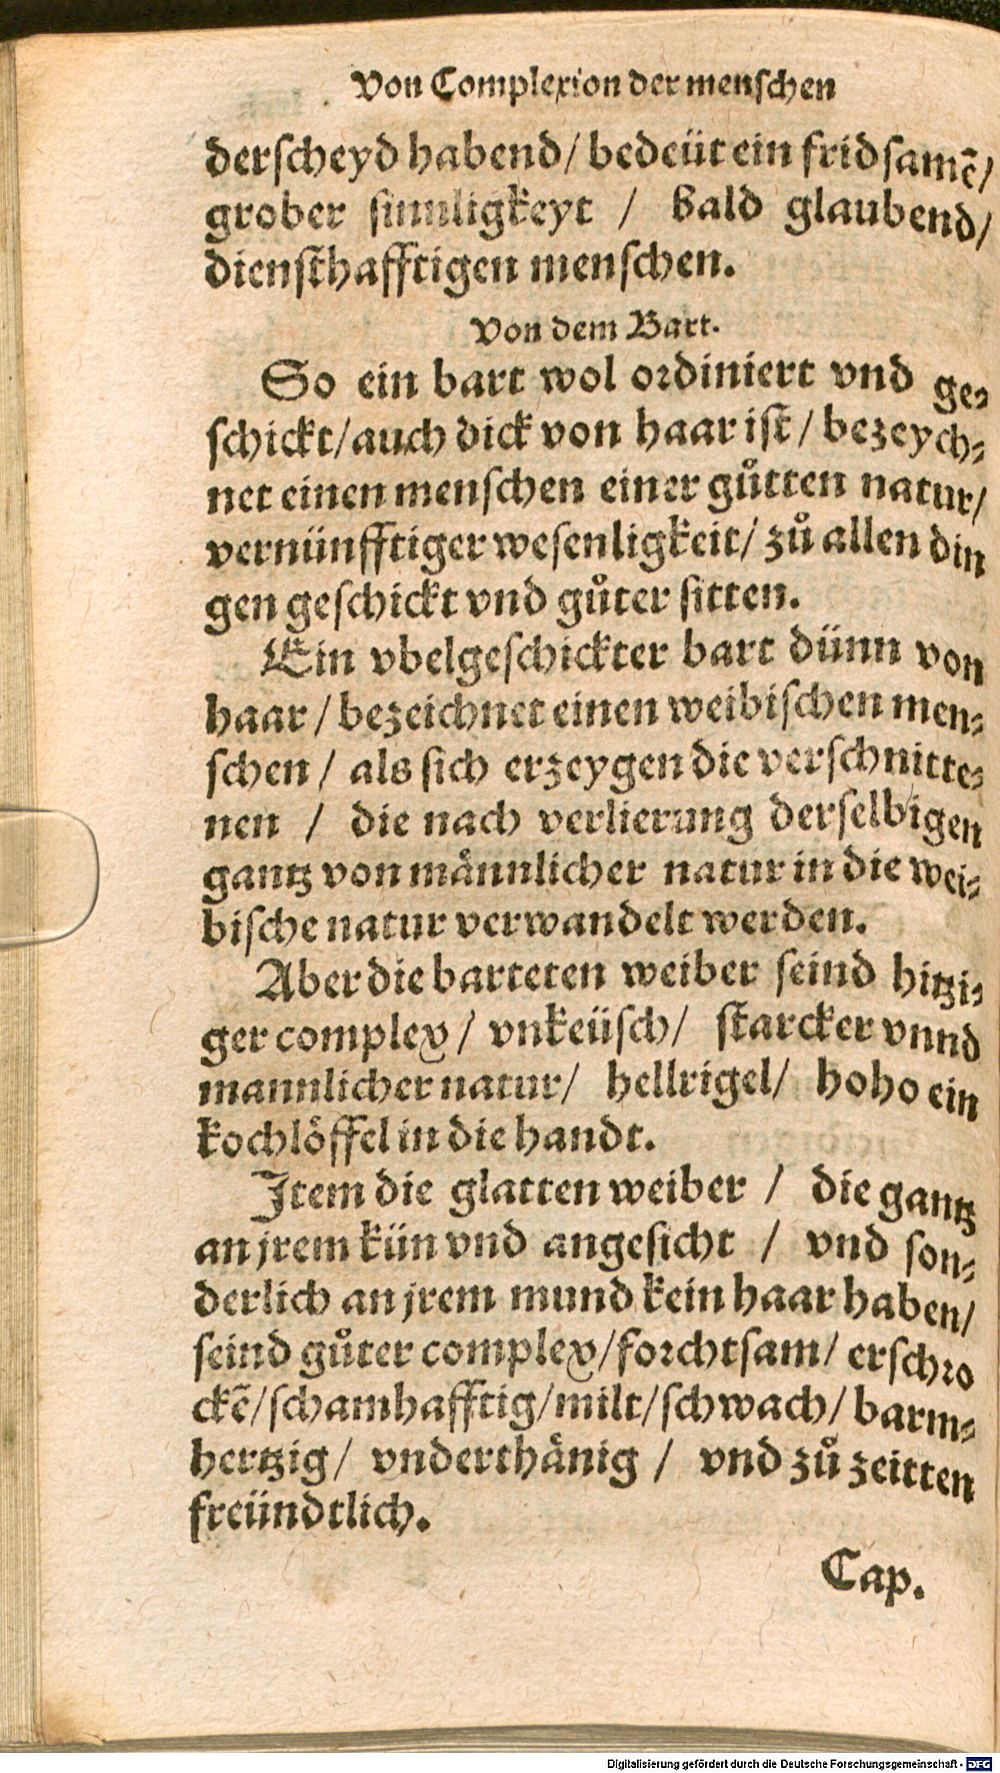 Von Complexion der menschen
derscheyd habend/ bedeüt ein fridsamẽ/
grober sinnligkeyt / bald glaubend/
diensthafftigen menschen.
Von dem Bart.
So ein bart wol ordiniert vnd ge⸗
schickt/auch dick von haar ist/ bezeych⸗
net einen menschen einer gůtten natur/
vernünfftiger wesenligkeit/ zů allen din
gen geschickt vnd gůter sitten.
Ein vbelgeschickter bart dünn von
haar / bezeichnet einen weibischen men⸗
schen / als sich erzeygen die verschnitte⸗
nen / die nach verlierung derselbigen
gantz von maͤnnlicher natur in die wei⸗
bische natur verwandelt werden.
Aber die barteten weiber seind hitzi⸗
ger complex/ vnkeüsch/ starcker vnnd
mannlicher natur/ hellrigel/ hoho ein
kochloͤffel in die handt.
Item die glatten weiber / die gantz
an jrem kün vnd angesicht / vnd son⸗
derlich an jrem mund kein haar haben/
seind gůter complex/forchtsam/ erschro
ckẽ/schamhafftig/milt/schwach/ barm⸗
hertzig/ vnderthaͤnig / vnd zů zeitten
freündtlich.
Cap.
Digitalisierung gefördert durch die Deutsche Forschungsgemeinschaft - DFG